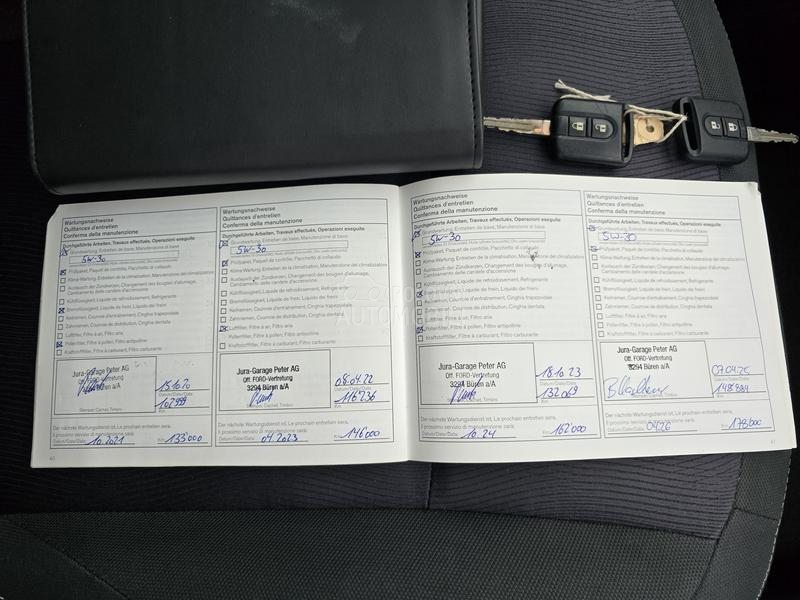 Wartungsnachweise
Quittances d'entretien
Conferma della manutenzione
Durchgeführte Arbeiten, Travaux effectués, Operazioni eseguite
Grundwartung, Entretien de base, Manutenzione di base
5W-30
Prüfpaket, Paquet de contrôle, Pacchetto di collaudo
Klima-Wartung, Entretien de la climatisation, Manutenzione del climatizzatore
Austausch der Zündkerzen, Changement des bougies d'allumage,
Cambiamento delle candele d'accensione
Kühlflüssigkeit, Liquide de refroidissement, Refrigerante
Bremsflüssigkeit, Liquide de frein, Liquido dei freni
Keilriemen, Courroie d'entraînement, Cinghia trapezoidale
Zahnriemen, Courroie de distribution, Cinghia dentata
Luftfilter, Filtre à air, Filtro aria
Pollenfilter, Filtre à pollen, Filtro antipolline
Kraftstofffilter, Filtre à carburant, Filtro carburante
Jura-Garage Peter AG
Off. FORD-Vertretung
3294 Büren a/A
Stempel, Cachet, Timbro
15.10.20
Datum/Date/Data
102'999
Km
Der nächste Wartungsdienst ist, Le prochain entretien sera,
Il prossimo servizio di manutenzione sarà:
Datum/Date/Data: 10.2021 Km 133'000
60
Wartungsnachweise
Quittances d'entretien
Conferma della manutenzione
Durchgeführte Arbeiten, Travaux effectués, Operazioni eseguite
Grundwartung, Entretien de base, Manutenzione di base
5W-30
Prüfpaket, Paquet de contrôle, Pacchetto di collaudo
Klima-Wartung, Entretien de la climatisation, Manutenzione del climatizzatore
Austausch der Zündkerzen, Changement des bougies d'allumage,
Cambiamento delle candele d'accensione
Kühlflüssigkeit, Liquide de refroidissement, Refrigerante
Bremsflüssigkeit, Liquide de frein, Liquido dei freni
Keilriemen, Courroie d'entraînement, Cinghia trapezoidale
Zahnriemen, Courroie de distribution, Cinghia dentata
Luftfilter, Filtre à air, Filtro aria
Pollenfilter, Filtre à pollen, Filtro antipolline
Kraftstofffilter, Filtre à carburant, Filtro carburante
Jura-Garage Peter AG
Off. FORD-Vertretung
3294 Büren a/A
Stempel, Cachet, Timbro
08.04.22
Datum/Date/Data
116'236
Km
Der nächste Wartungsdienst ist, Le prochain entretien sera,
Il prossimo servizio di manutenzione sarà:
Datum/Date/Data: 04.2023 Km 146'000
Wartungsnachweise
Quittances d'entretien
Conferma della manutenzione
Durchgeführte Arbeiten, Travaux effectués, Operazioni eseguite
Grundwartung, Entretien de base, Manutenzione di base
5W-30
Prüfpaket, Paquet de contrôle, Pacchetto di collaudo
Klima-Wartung, Entretien de la climatisation, Manutenzione del climatizzatore
Austausch der Zündkerzen, Changement des bougies d'allumage,
Cambiamento delle candele d'accensione
Kühlflüssigkeit, Liquide de refroidissement, Refrigerante
Bremsflüssigkeit, Liquide de frein, Liquido dei freni
Keilriemen, Courroie d'entraînement, Cinghia trapezoidale
Zahnriemen, Courroie de distribution, Cinghia dentata
Luftfilter, Filtre à air, Filtro aria
Pollenfilter, Filtre à pollen, Filtro antipolline
Kraftstofffilter, Filtre à carburant, Filtro carburante
Jura-Garage Peter AG
Off. FORD-Vertretung
3294 Büren a/A
Stempel, Cachet, Timbro
18.10.23
Datum/Date/Data
132'069
Km
Der nächste Wartungsdienst ist, Le prochain entretien sera,
Il prossimo servizio di manutenzione sarà:
Datum/Date/Data: 10.24 Km 162'000
Wartungsnachweise
Quittances d'entretien
Conferma della manutenzione
Durchgeführte Arbeiten, Travaux effectués, Operazioni eseguite
Grundwartung, Entretien de base, Manutenzione di base
5W-30
Prüfpaket, Paquet de contrôle, Pacchetto di collaudo
Klima-Wartung, Entretien de la climatisation, Manutenzione del climatizzatore
Austausch der Zündkerzen, Changement des bougies d'allumage,
Cambiamento delle candele d'accensione
Kühlflüssigkeit, Liquide de refroidissement, Refrigerante
Bremsflüssigkeit, Liquide de frein, Liquido dei freni
Keilriemen, Courroie d'entraînement, Cinghia trapezoidale
Zahnriemen, Courroie de distribution, Cinghia dentata
Luftfilter, Filtre à air, Filtro aria
Pollenfilter, Filtre à pollen, Filtro antipolline
Kraftstofffilter, Filtre à carburant, Filtro carburante
Jura-Garage Peter AG
Off. FORD-Vertretung
3294 Büren a/A
Stempel, Cachet, Timbro
07.04.25
Datum/Date/Data
148'884
Km
Der nächste Wartungsdienst ist, Le prochain entretien sera,
Il prossimo servizio di manutenzione sarà:
Datum/Date/Data: 04.26 Km 178'000
61